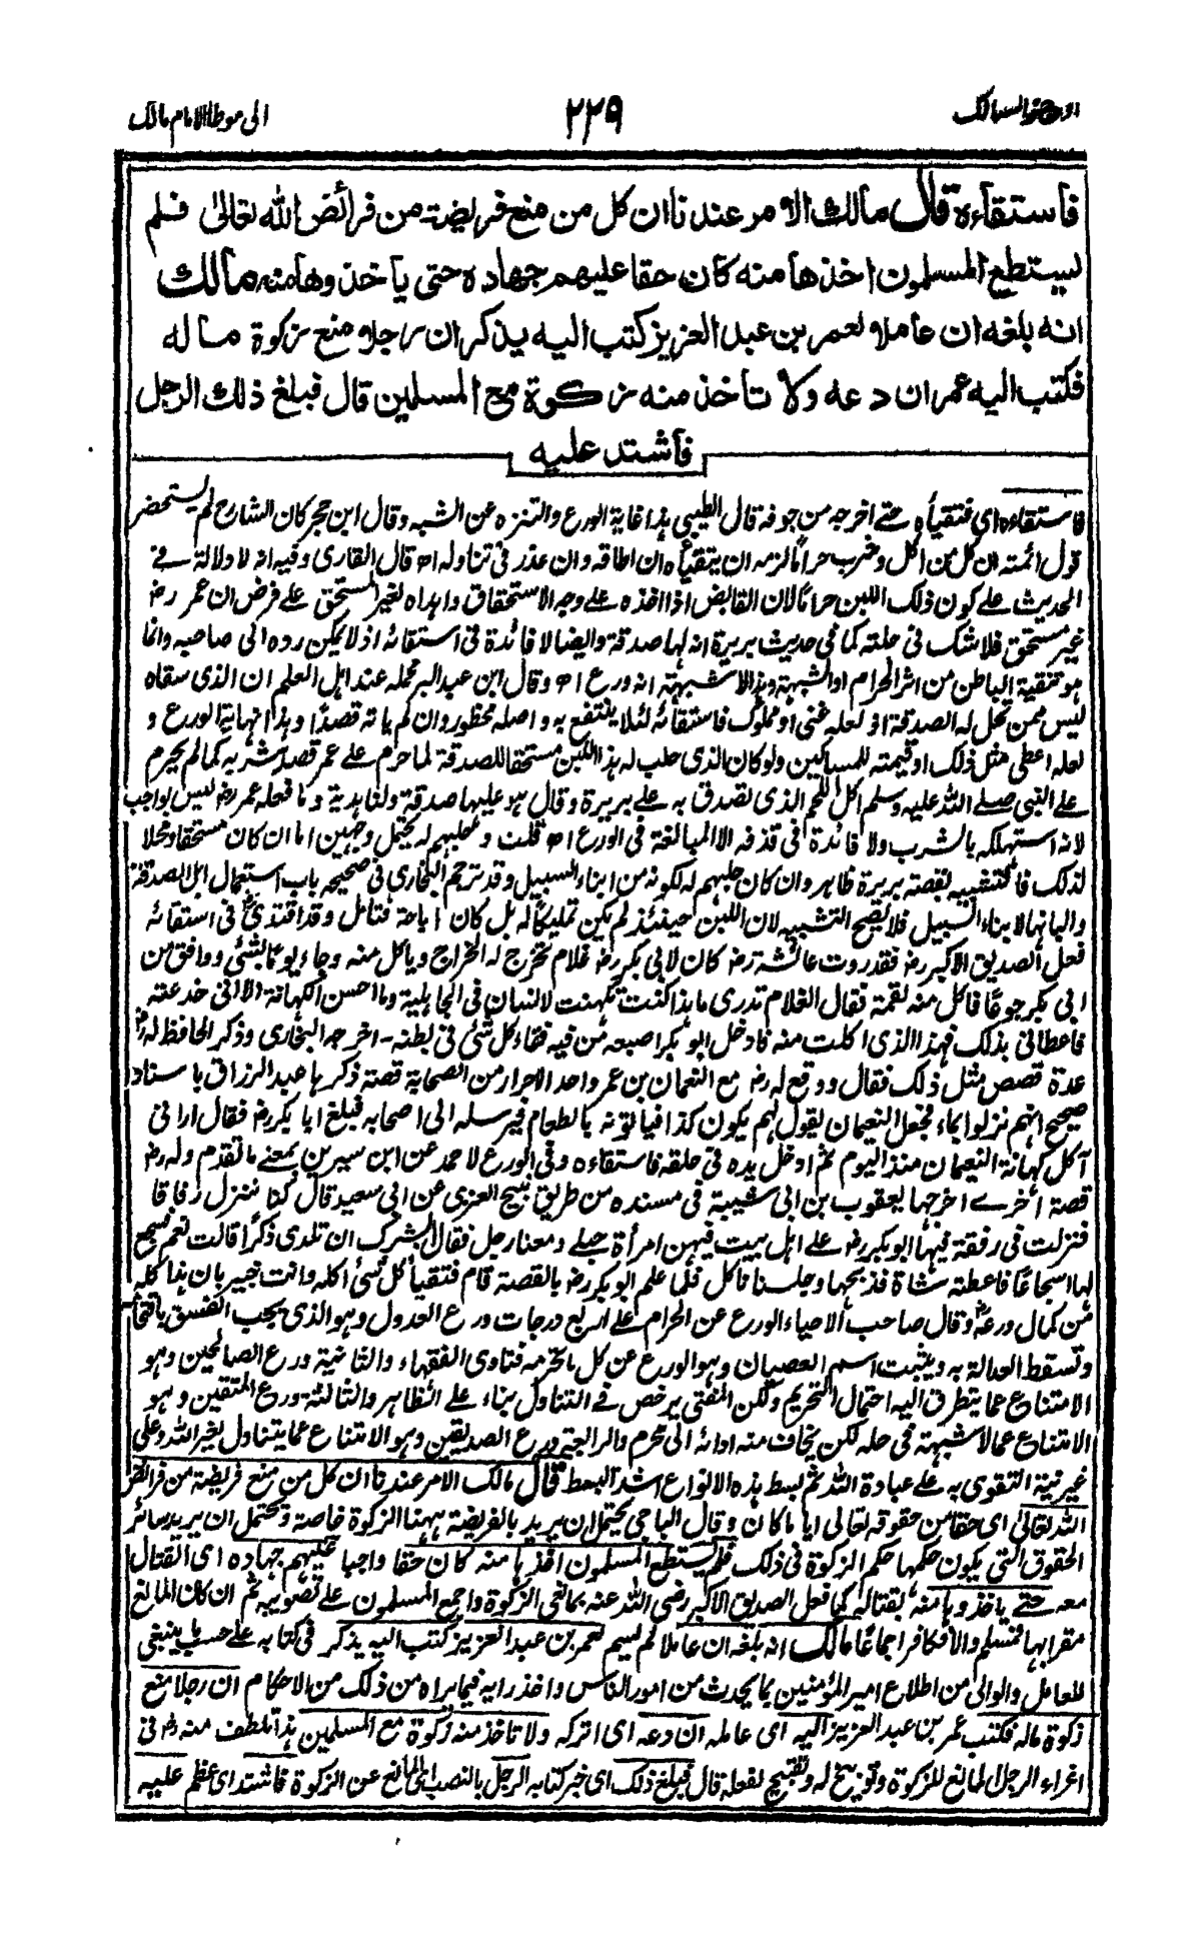 اوجز المسالك
٢٢٩
الى موطا الامام مالك
فاستقاءه قال مالك الامر عندنا ان كل من منع فريضة من فرائض الله تعالىٰ فلم
يستطع المسلمون اخذها منه كان حقا عليهم جهاده حتى ياخذوها منه مالك
انه بلغه ان عاملا لعمر بن عبد العزيز كتب اليه يذكر ان رجلا منع زكوة ماله
فكتب اليه عمر ان دعه ولا تاخذ منه زكوة مع المسلمين قال فبلغ ذلك الرجل
فاشتد عليه
فاستقاءه اى فتقيأه حتے اخرجه من جوفه قال الطيبى هذا غاية الورع والتنزه عن الشبه وقال ابن حجر كان الشارح لم يستحضر
قول ائمته ان كل من اكل وشرب حراما لزمه ان يتقيأه ان اطاقه وان عذر فى تناوله اھ قال القارى وفيه انه لا دلالة فے
الحديث علے كون ذلك اللبن حراما لان القابض اذا اخذه علے وجه الاستحقاق واهداه لغير المستحق علے فرض ان عمر رض
غير مستحق فلا شك فى حلته كما فى حديث بريرة انه لها صدقة وايضا لا فائدة فى استقائه اذ لا يمكن رده الى صاحبه وانما
هو تنقية الباطن من اثر الحرام او الشبهة وهذا لا شبهة انه ورع اھ وقال ابن عبد البر محمله عند اهل العلم ان الذى سقاه
ليس ممن تحل له الصدقة او لعله غنى او مملوك فاستقائه لئلا ينتفع به واصله محظور وان لم ياته قصدًا وهذا نهاية الورع و
لعله اعطى مثل ذلك او قيمته للمساكين ولو كان الذى حلب له هذا اللبن مستحقا للصدقة لما حرم علے عمر قصد شربه كما لم يحرم
علے النبى صلے الله عليه وسلم اكل اللحم الذى تصدق به علے بريرة وقال هو عليها صدقة ولنا هدية وما فعله عمر رض ليس بواجب
لانه استهلكه بالشرب ولا فائدة فى قذفه الا المبالغة فى الورع اھ قلت وحلبهم له يحتمل وجهين اما ان كان مستحقا ومحلا
لذلك فالتشبيه بقصة بريرة ظاهر وان كان حلبهم له لكونه من ابناء السبيل وقد ترجم البخارى فى صحيحه باب استعمال ابل الصدقة
والبانها لابناء السبيل فلا يصح التشبيه لان اللبن حينئذ لم يكن تمليكًا له بل كان اباحة فتامل وقد اقتدىٰ فى استقائه
فعل الصديق الاكبر رض فقد روت عائشة رض كان لابى بكر رض غلام تخرج له الخراج وياكل منه وجاء يومًا بشئ ووافق من
ابى بكر جوعًا فاكل منه لقمة فقال الغلام تدرى ما هذا كنت تكهنت لانسان فى الجاهلية وما احسن الكهانة الا انى خدعته
فاعطانى بذلك فهذا الذى اكلت منه فادخل ابو بكر اصبعه من فيه فقاء كل شئ فى بطنه - اخرجه البخارى وذكر الحافظ له رض
عدة قصص مثل ذلك فقال ووقع له رض مع النعمان بن عمر واحد الاحرار من الصحابة قصة ذكرها عبد الرزاق باسناد
صحيح انهم نزلوا بماء فجعل النعيمان يقول لهم يكون كذا فياتونه بالطعام فيرسله الى اصحابه فبلغ ابا بكر رض فقال ارانى
آكل كهانة النعيمان منذ اليوم ثم ادخل يده فى حلقه فاستقاءه وفى الورع لاحمد عن ابن سيرين بمعنے ما تقدم وله رض
قصة اخرے اخرجها يعقوب بن ابى شيبة فى مسنده من طريق نبيح العنزى عن ابى سعيد قال كنا ننزل رفاقا
فنزلت فى رفقة فيها ابو بكر رض علے اهل بيت فيهن امرأة حبلے ومعنا رجل فقال ابشرك ان تلدى ذكرًا قالت نعم فسجع
لها اسجاعًا فاعطته شاة فذبحها وجلسنا ناكل فلما علم ابو بكر رض بالقصة قام فتقيأ كل شئ اكله وانت خبير بان هذا كله
من كمال ورعه وقال صاحب الاحياء الورع عن الحرام علے اربع درجات ورع العدول وهو الذى يجب الفسق باقتحا
وتسقط العدالة به ويثبت اسم العصيان وهو الورع عن كل ما تحرمه فتاوى الفقهاء والثانية ورع الصالحين وهو
الامتناع عما يتطرق اليه احتمال التحريم ولكن المفتى يرخص فے التناول بناء علے الظاهر والثالثة ورع المتقين وهو
الامتناع عما لا شبهة فى حله لكن يخاف منه ادائه الى محرم والرابعة ورع الصديقين وهو الامتناع عما يتناول لغير الله وعلى
غير نية التقوى به علے عبادة الله ثم بسط هذه الانواع اشد البسط قال مالك الامر عندنا ان كل من منع فريضة من فرائض
الله تعالىٰ اى حقا من حقوقه تعالى ايا ما كان وقال الباجى يحتمل ان يريد بالفريضة ههنا الزكوة خاصة وتحتمل ان يريد سائر
الحقوق التى يكون حكمها حكم الزكوة فى ذلك فلم يستطع المسلمون اخذها منه كان حقا واجبا عليهم جهاده اى القتال
معه حتے ياخذوها منه بقتاله كما فعل الصديق الاكبر رضى الله عنه بمانعى الزكوة واجمع المسلمون علے تصويبه ثم ان كان المانع
مقرا بها فمسلم والا فكافر اجماعًا مالك انه بلغه ان عاملا لم يسم لعمر بن عبد العزيز كتب اليه يذكر فى كتابه علے حسب ما ينبغى
للعامل والوالى من اطلاع امير المؤمنين بما يحدث من امور الناس واخذ رايه فيما يراه من ذلك من الاحكام ان رجلا منع
زكوة ماله فكتب عمر بن عبد العزيز اليه اى عامله ان دعه اى اتركه ولا تاخذ منه زكوة مع المسلمين هذا تلطف منه رض فى
اغراء الرجل المانع للزكوة وتوبيخ له وتقبيح لفعله قال فبلغ ذلك اى خبر كتابه الرجل بالنصب اى المانع عن الزكوة فاشتد اى عظم عليه